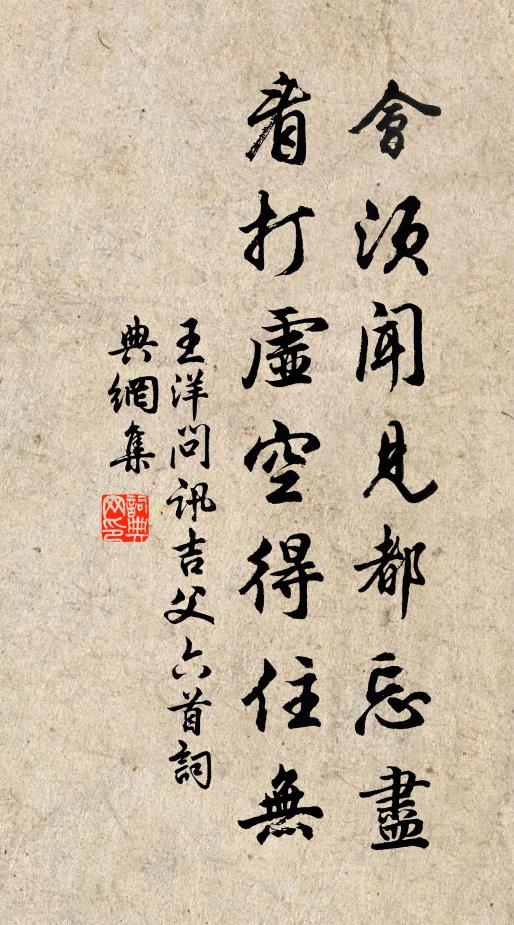 會須聞見都忘盡
看打虛空得住無
王洋問訊吉父六首詞
典網集
詞典網印